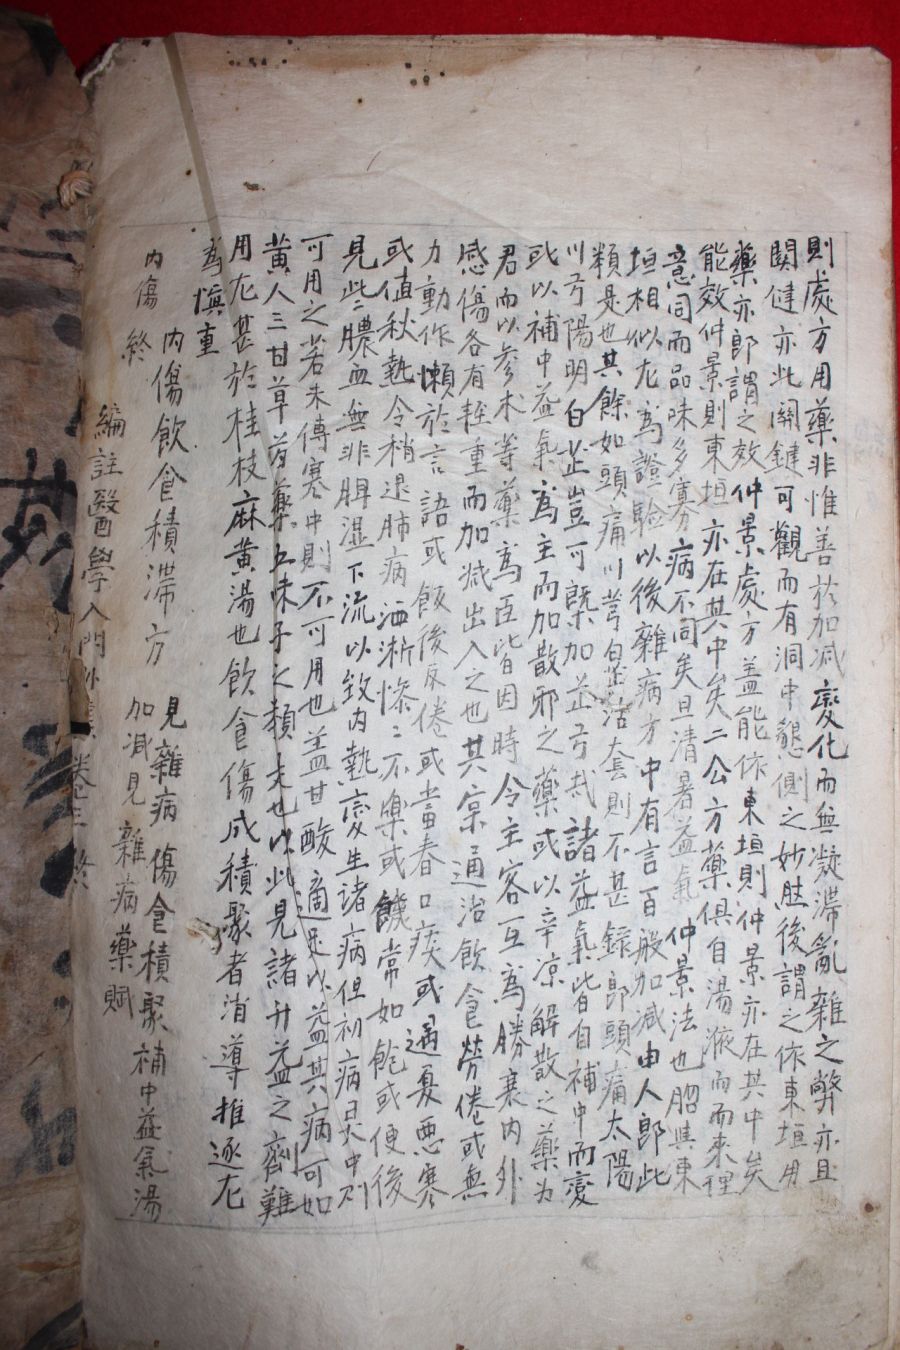 則處方用藥非惟善於加減變化而無凝滯亂雜之弊亦且
関健亦此関鍵可觀而有洞中懇側之妙肚後謂之依東垣用
藥亦即謂之效仲景處方盖能依東垣則仲景亦在其中矣
能效仲景則東垣亦在其中矣二公方藥俱自湯液而來裡
意同而品味多寡病不同矣旦清暑益氣仲景法也昭與東
垣相似尤為證驗以後雜病方中有言百般加減由人即此
類是也其餘如頭痛川芎白芷活套則不甚録即頭痛太陽
川芎陽明白芷豈可槩加芷芎哉諸益氣皆自補中而變
或以補中益氣為主而加散邪之藥或以辛凉解散之藥为
君而以参术等藥為臣皆因時令主客互為勝衰内外
感傷各有輕重而加减出入之也其宗通治飲食勞倦或無
力動作懶於言語或飯後反倦或當春口疾或遇夏悪寒
或值秋熱令稍退肺病洒淅慘〻不樂或饑常如飽或便後
見此〻膿血無非脾湿下流以致内熱变生諸病但初病昃中則
可用之若未傳寒中則不可用也盖甘酸適足以益其病可如
黄人三甘草芍藥五味子之類大也以此見諸升益之劑難
用尤甚於桂枝麻黄湯也飲食傷成積聚者消導推逐尤
為愼重
内傷飲食積滯方 見雜病傷食積聚補中益氣湯
加减見雜病藥賦
内傷終
編註醫學入門外集卷三終